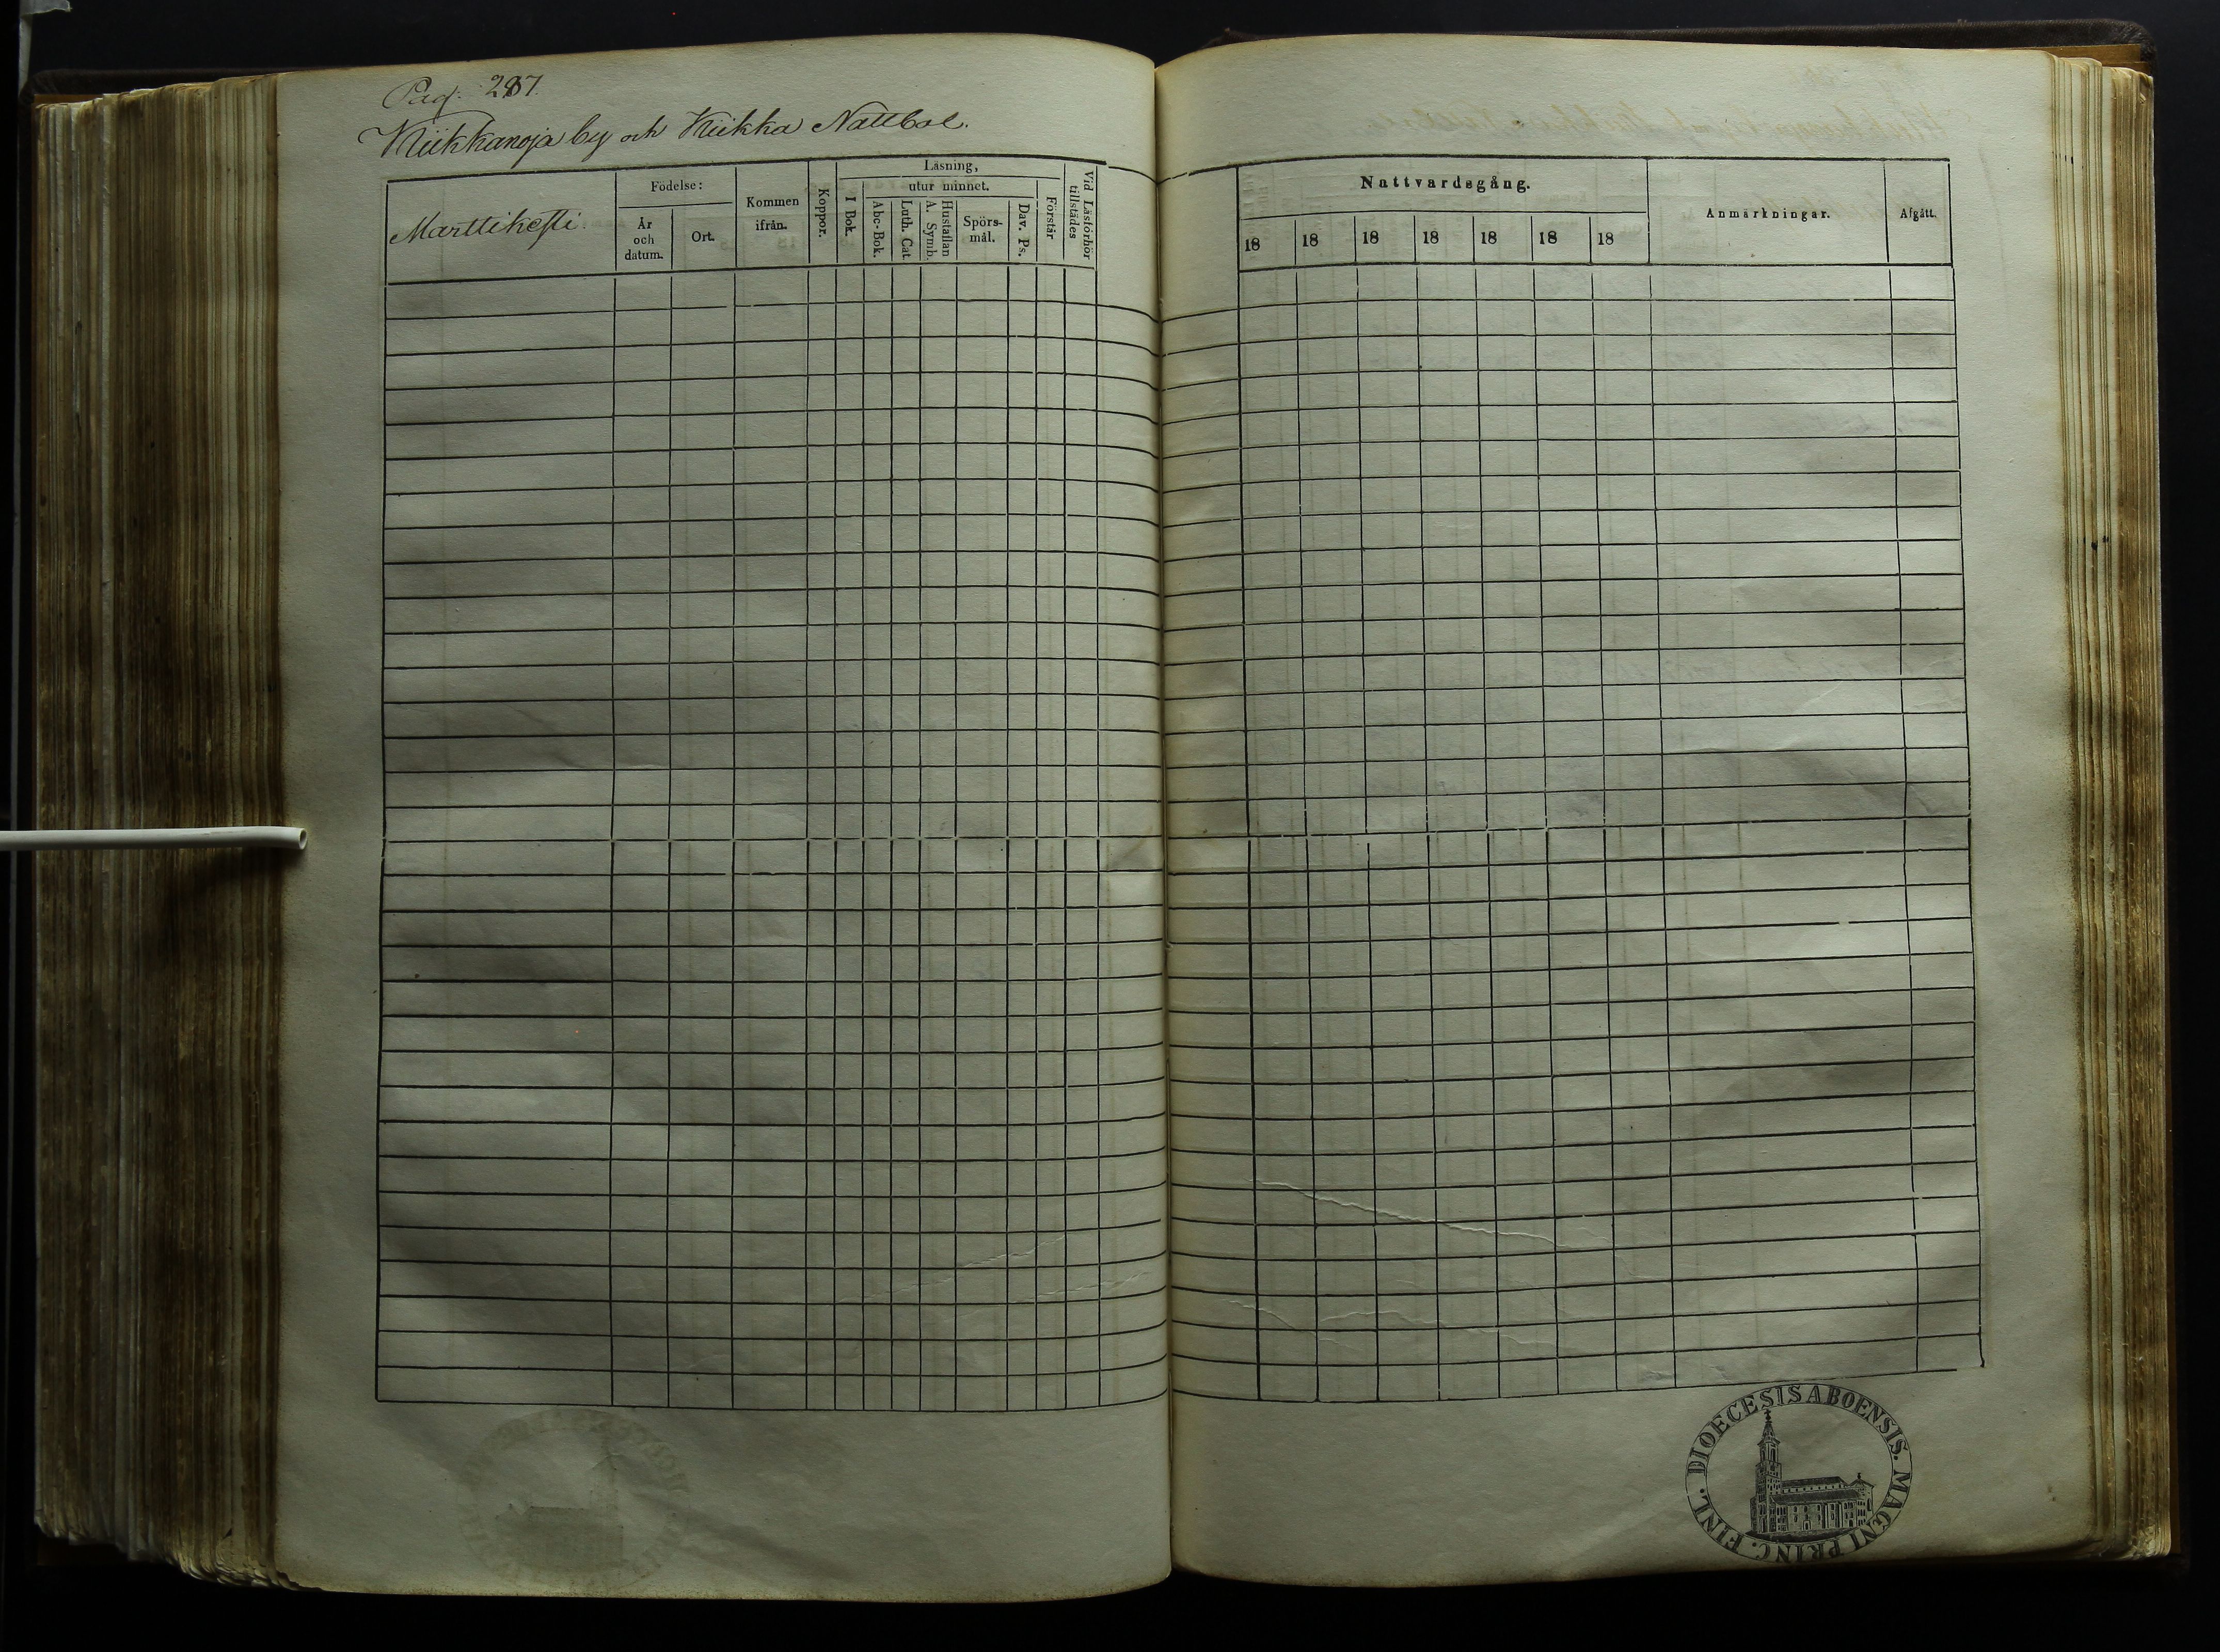 Pag. 287.
Kiikkanoja by och Kiikka Nattbol.
Marttikesti.
Födelse:
År
och
datum.
Ort.
Kommen
ifrån.
Koppor.
Läsning,
utur minnet.
I Bok.
Abc-Bok.
Luth. Cat
Hustaflan
A. Symb.
Spörs-
mål.
Dav. Ps.
Förstår
Vid Läsförhör
tillstädes
Nattvardsgång.
18 18 18 18 18 18 18
Anmärkningar.
Afgått.
DIOECESIS ABOENSIS. MAGNI PRINC. FINL.